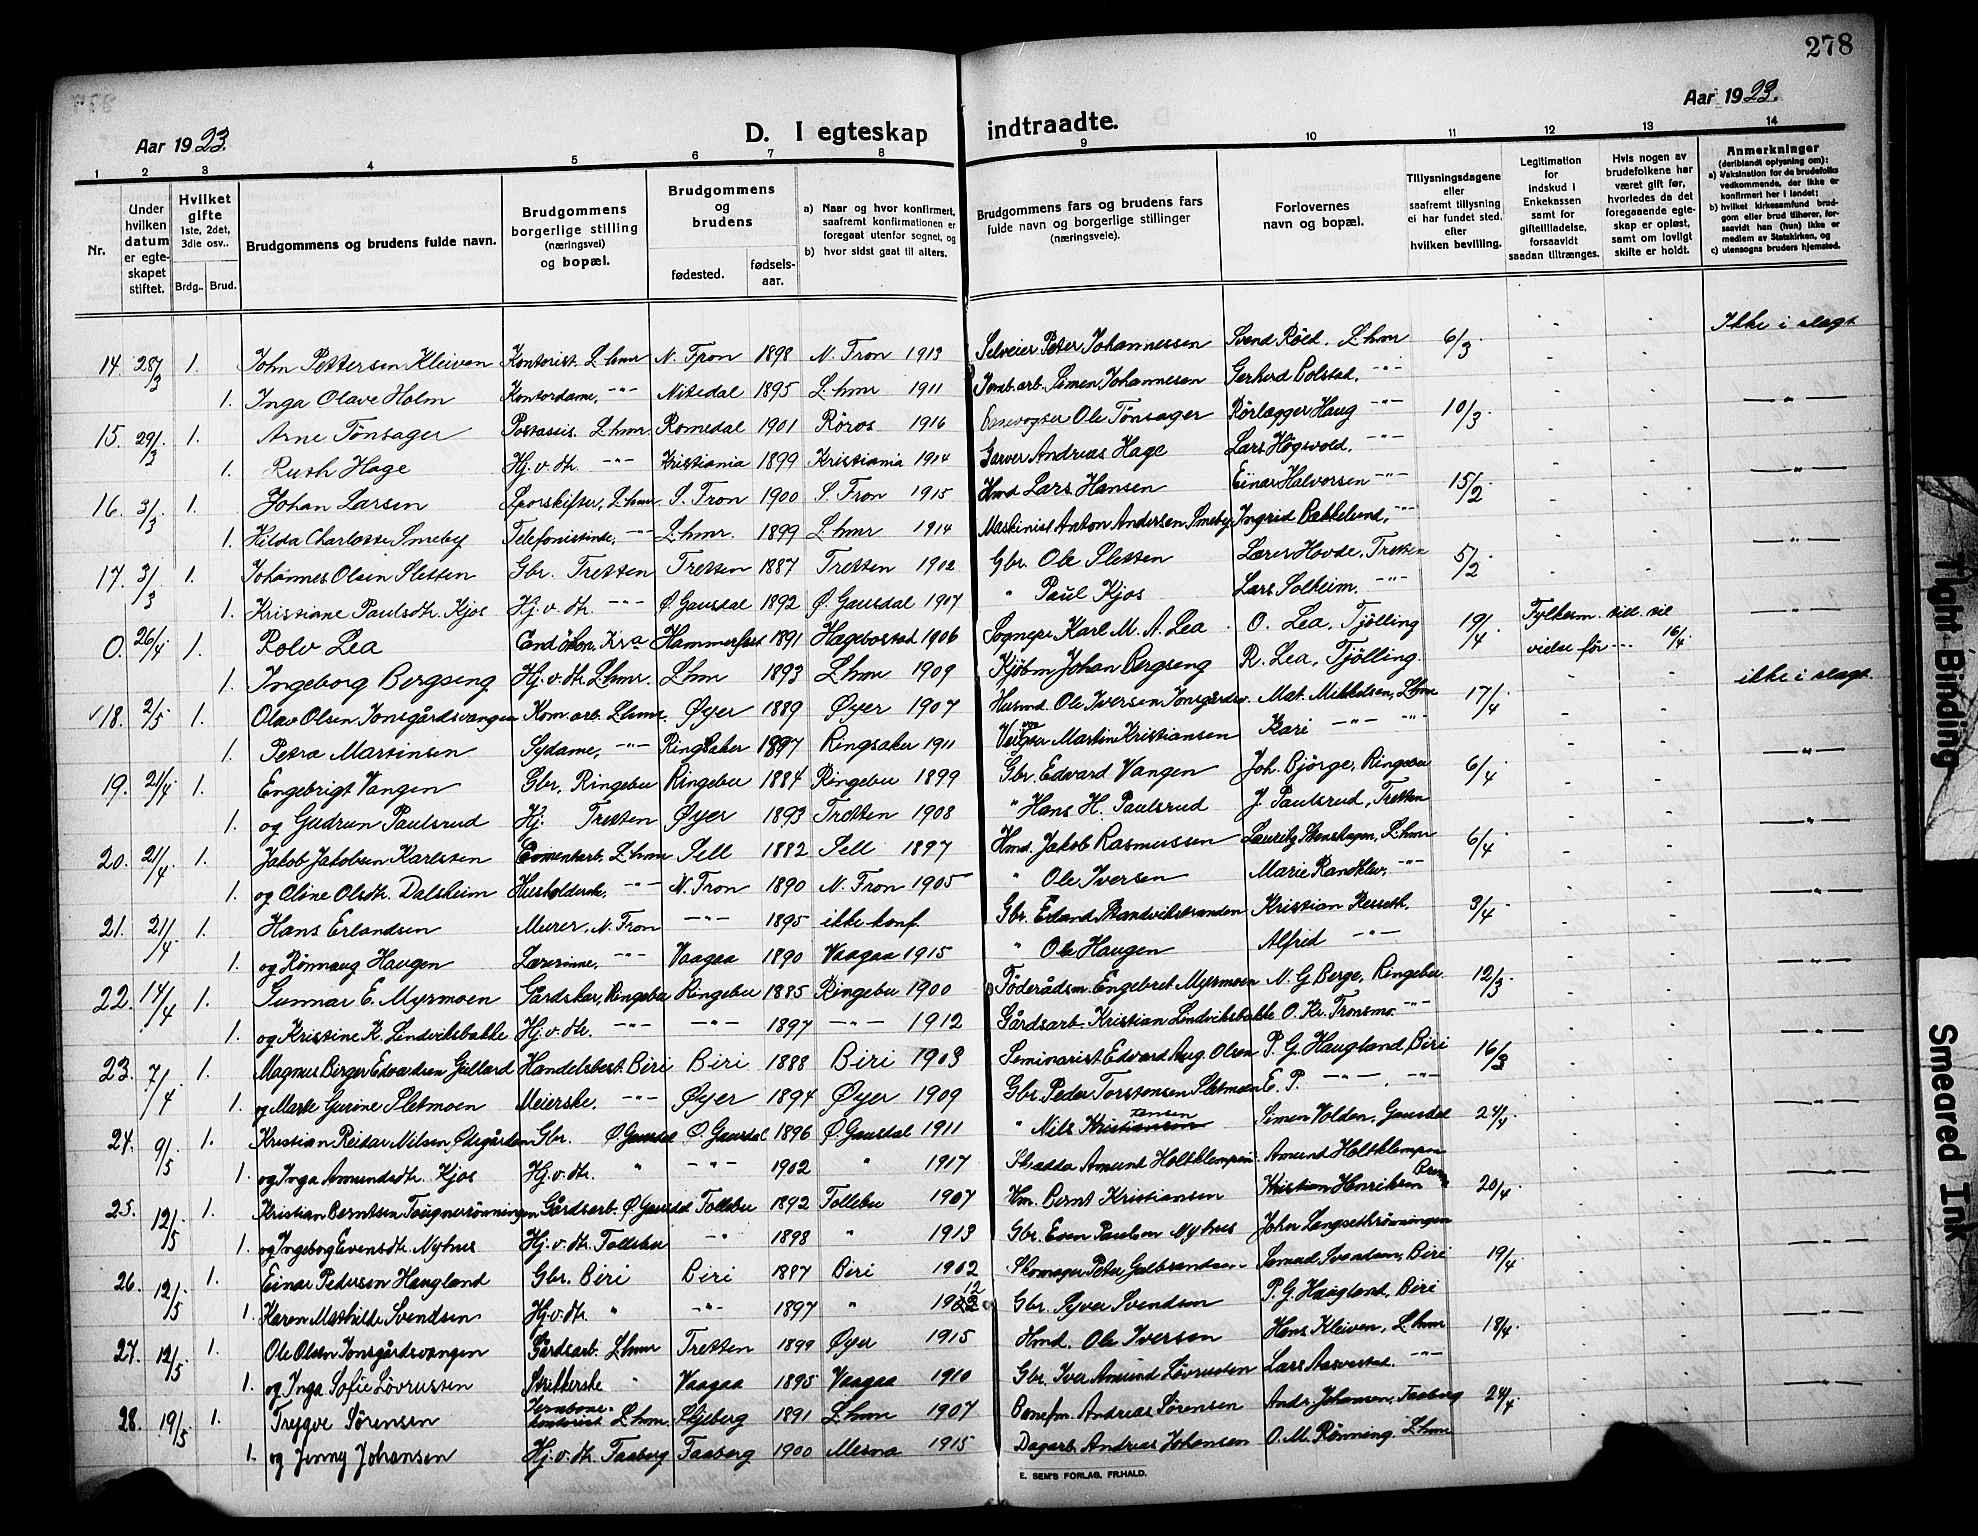 278
Aar 1923.
D. I egteskap indtraadte.
Aar 1923.
1 2 3 4 5 6 7 8 9 10 11 12 13 14
Nr.
Under hvilken datum er egteskapet stiftet.
Hvilket gifte 1ste, 2det, 3die osv..
Brdg.. Brud.
Brudgommens og brudens fulde navn.
Brudgommens borgerlige stilling (næringsvei) og bopæl.
Brudgommens og brudens
fødested. fødsels-aar.
a) Naar og hvor konfirmert, saafremt konfirmationen er foregaat utenfor sognet, og
b) hvor sidst gaat til alters.
Brudgommens fars og brudens fars fulde navn og borgerlige stillinger (næringsveie).
Forlovernes navn og bopæl.
Tillysningsdagene eller saafremt tillysning ei har fundet sted, efter hvilken bevilling.
Legitimation for indskud i Enkekassen samt for giftetilladelse, forsaavidt saadan tiltrænges.
Hvis nogen av brudefolkene har været gift før, hvorledes da det foregaaende egteskap er opløst, samt om lovligt skifte er holdt.
Anmerkninger (deriblandt oplysning om): a) Vaksination for de brudefolks vedkommende, der ikke er konfirmert her i landet; b) hvilket kirkesamfund brudgom eller brud tilhører, forsaavidt han (hun) ikke er medlem av Statskirken, og c) utensogns bruders hjemsted.
14. 28/3 1. John Pettersen Kleiven Kontorist. L.hmr N. Fron 1898 N. Fron 1913 Selveier Peter Johannessen Svend Röed, L.hmr 6/3 Ikke i slegt
1. Inga Olave Holm Kontordame, -"- Nitedal 1895 L.hmr 1911 Jernb.arb. Simen Johannesen Gerherd Colstad, -"-
15. 29/3 1. Arne Tönsager Postassis. L.hmr. Romedal 1901 Röros 1916 Banevogter Ole Tönsager Rörlægger Haug -"- 10/3 -"-
1. Ruth Hage Hj.v.dtr. -"- Kristiania 1899 Kristiania 1914 Garver Andreas Hage Lars Högsvold, -"-
16. 3/3 1. Johan Larsen Sporskifter, L.hmr S. Fron 1900 S. Fron 1915 Hmd Lars Hansen Einar Halvorsen -"- 15/2 -"-
1. Hilda Charlotte Smeby Telefonistinde, -"- L.hmr. 1899 L.hmr 1914 Maskinist Anton Andersen Smeby Ingrid Bakkelund, -"-
17. 3/3 1. Johannes Olsen Sletten Gbr. Tretten Tretten 1887 Tretten 1902 Gbr. Ole Sletten Lærer Hovde, Tretten 5/2 -"-
1. Kristiane Paulsdtr. Kjos Hj.v.dtr. -"- Ø. Gausdal 1892 Ø. Gausdal 1907 " Paul Kjos Lars Solheim, -"-
0. 26/4 1. Rolv Lea Cand ökon. Kra Hammerfest 1891 Hægebostad 1906 Sognepr. Karl M. A. Lea O. Lea, Tjölling 19/4 Fylkesm. till. til -"-
1. Ingeborg Bergseng Hj.v.dtr. L.hmr. L.hmr 1893 L.hmr 1909 Kjöbm Johan Bergseng R. Lea, Tjölling. vielse för --- 16/4
18. 2/5 1. Olav Olsen Jonsgårdsvangen Kom.arb. L.hmr Øyer 1889 Øyer 1907 Husmd. Ole Iversen Jonsgårdsv. Mat. Mikkelsen, L.hmr 17/4 ikke i slegt
1. Petra Martinsen Sydame, -"- Ringsaker 1897 Ringsaker 1911 Martin Kristiansen Kari -"- -"-
19. 21/4 1. Engebrigt Vangen Gbr, Ringebu Ringebu 1884 Ringebu 1899 Gbr. Edvard Vangen Joh. Bjørge, Ringebu 6/4 -"-
1. og Gudrun Paulsrud Hj. Tretten Øyer 1893 Tretten 1908 " Hans H. Paulsrud J. Paulsrud, Tretten
20. 21/4 1. Jakob Jakobsen Karlsten Cementarb. L.hmr Sell 1882 Sell 1897 Hmd. Jakob Rasmussen Lauritz Stenshagen, L.hmr 6/4 -"-
1. og Oline Olsdtr. Dalsheim Husholderske, -"- N. Fron 1890 N. Fron 1905 " Ole Iversen Marie Randklev, -"-
21. 21/4 1. Hans Erlandsen Murer, N. Fron -"- 1895 ikke konf. Gbr. Erland Strandvikstranden Kristian 3/4 -"-
1. og Rönnaug Haugen Lærerinne, -"- Vaagaa 1890 Vaagaa 1915 " Ole Haugen Alfred -"-
22. 14/4 1. Gunnar E. Myrmoen Gårdskar, Ringebu Ringebu 1885 Ringebu 1900 Föderådsm. Engebret Myrmoen N. G Berge, Ringebu 12/3 -"-
1. og Kristine K. Lendviksbakke Hj.v.dtr. -"- -"- 1897 -"- 1912 Gårdsarb. Kristian Lendviksbakke O. Kr. Fronsmo -"-
23. 7/4 1. Magnus Birger Edvardsen Gullard Handelsbest. Biri Biri 1888 Biri 1903 Seminarist Edvard Aug. Olsen P. G. Haugland, Biri 16/3 -"-
1. og Marte Gurine Sletmoen Meierske, -"- Øyer 1894 Øyer 1909 Gbr. Peder Torstensen Sletmoen E. P. -"- -"-
24. 9/5 1. Kristian Reidar Nilsen Ødegården Gbr. Ø Gausdal Ø Gausdal 1896 Ø. Gausdal 1911 " Nils Kristiansen Simen Volden, Gausdal 24/4 -"-
1. og Inga Amundsdtr. Kjos Hj.v.dtr. " -"- 1902 " 1917 Skredder Amund Holtklempen Amund Holtklempen
25. 12/5 1. Kristian Berntsen Gårdsarb. Ø Gausdal Follebu 1892 Follebu 1907 Hm. Bernt Kristiansen Kristian Henriksen 20/4 -"-
1. og Ingeborg Evensdtr. Nyhus Hj.v.dtr. Follebu -"- 1898 " 1913 Gbr. Even Paulsen Nyhus John Langsethrönningen
26. 12/5 1. Einar Pedersen Haugland Gbr. Biri Biri 1887 Biri 1902 Skomager Peter Gulbrandsen Svendsen, Biri 19/4 -"-
1. Karen Mathilde Svendsen Hj.v.dtr. " -"- 1897 " 1912 Gbr. Syver Svendsen P. G. Haugland, Biri
27. 12/5 1. Ole Olsen Jonsgårdsvangen Gårdsarb. L.hmr Tretten 1899 Øyer 1915 Hmd. Ole Iversen Hans Kleiven, L.hmr 18/4 -"-
1. og Inga Sofie Lövrusten Strikkerske " Vaagaa 1895 Vaagaa 1910 Gbr. Iver Amund Lövrusten Lars Aarvestad. -"-
28. 19/5 1. Trygve Sörensen Jernbane-kontorist L.hmr Skjeberg 1891 L.hmr 1907 Banefm. Andreas Sörensen Andr. Johansen, Faaberg 24/4 -"-
1. og Jenny Johansen Hj.v.dtr. Faaberg Faaberg 1900 Mesna 1915 Dagarb. Andreas Johansen O. M. Rönning L.hmr
E. SEM'S FORLAG, FR.HALD.
Tight Binding
Smeared Ink